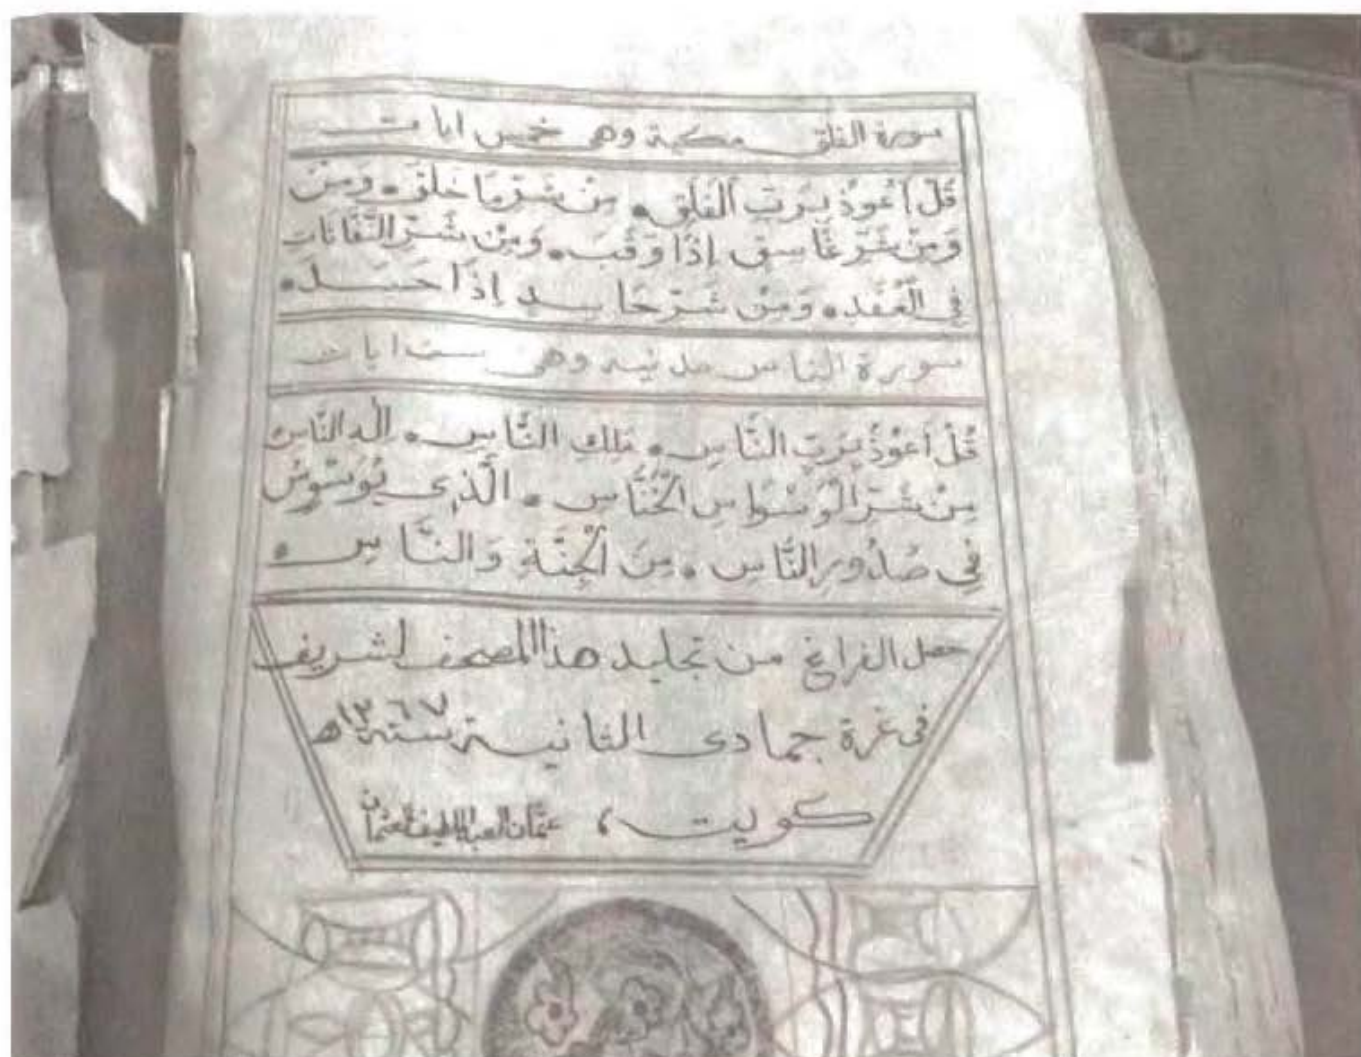 سورة الفلق مكية وهي خمس ايات
قُلْ أَعُوذُ بِرَبِّ الْفَلَقِ • مِنْ شَرِّ مَا خَلَقَ • وَمِنْ
وَمِنْ شَرِّ غَاسِقٍ إِذَا وَقَبَ • وَمِنْ شَرِّ النَّفَّاثَاتِ
فِي الْعُقَدِ • وَمِنْ شَرِّ حَاسِدٍ إِذَا حَسَدَ •
سورة الناس مدنيه وهى ست ايات
قُلْ أَعُوذُ بِرَبِّ النَّاسِ • مَلِكِ النَّاسِ • اِلٰهِ النَّاسِ
مِنْ شَرِّ الْوَسْوَاسِ الْخَنَّاسِ • الَّذِي يُوَسْوِسُ
فِي صُدُورِ النَّاسِ • مِنَ الْجِنَّةِ وَالنَّاسِ •
حصل الفراغ من تجليد هذا المصحف لشريف
فى غرة جمادى الثانية سنة ١٣٦٧ هـ
كويت ، عثمان العبد اللطيف العثمان